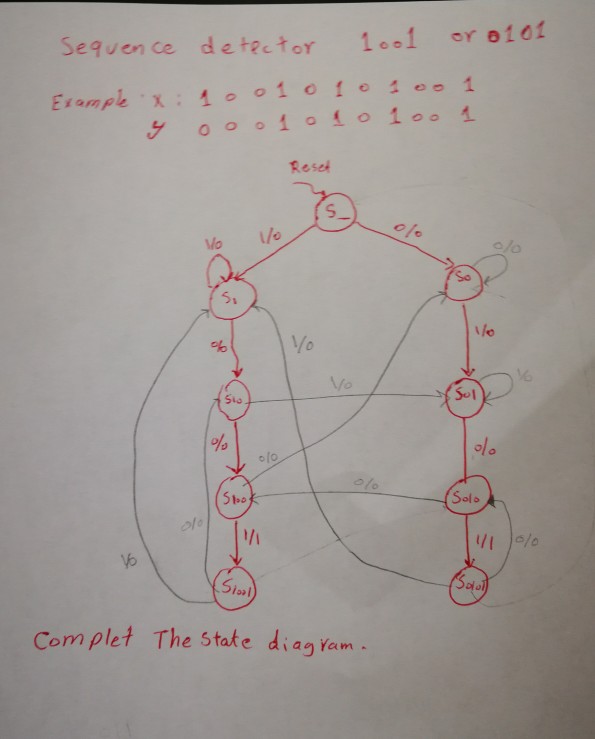 Sequence detector 1001 or 0101
Example x : 1 0 0 1 0 1 0 1 0 0 1
y 0 0 0 1 0 1 0 1 0 0 1
Reset
S_
1/0 0/0
1/0 0/0
S1 S0
0/0 1/0 1/0
S10 1/0 S01 1/0
0/0 0/0 0/0
S100 0/0 S010
0/0 1/1 1/1 0/0
1/0 S1001 S0101
Complet The state diagram.